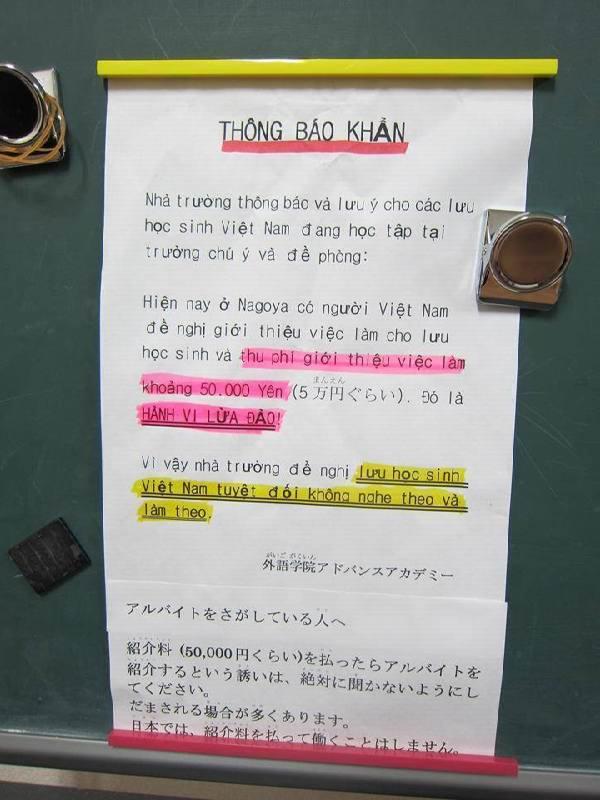 THÔNG BÁO KHẨN
Nhà trường thông báo và lưu ý cho các lưu
học sinh Việt Nam đang học tập tại
trường chú ý và đề phòng:
Hiện nay ở Nagoya có người Việt Nam
đề nghị giới thiệu việc làm cho lưu
học sinh và thu phí giới thiệu việc làm
khoảng 50.000 Yên (5万円ぐらい). Đó là
HÀNH VI LỪA ĐẢO!
Vì vậy nhà trường đề nghị lưu học sinh
Việt Nam tuyệt đối không nghe theo và
làm theo.
外語学院アドバンスアカデミー
アルバイトをさがしている人へ
紹介料 (50,000円くらい)を払ったらアルバイトを
紹介するという誘いは、絶対に聞かないようにし
てください。
だまされる場合が多くあります。
日本では、紹介料を払って働くことはしません。